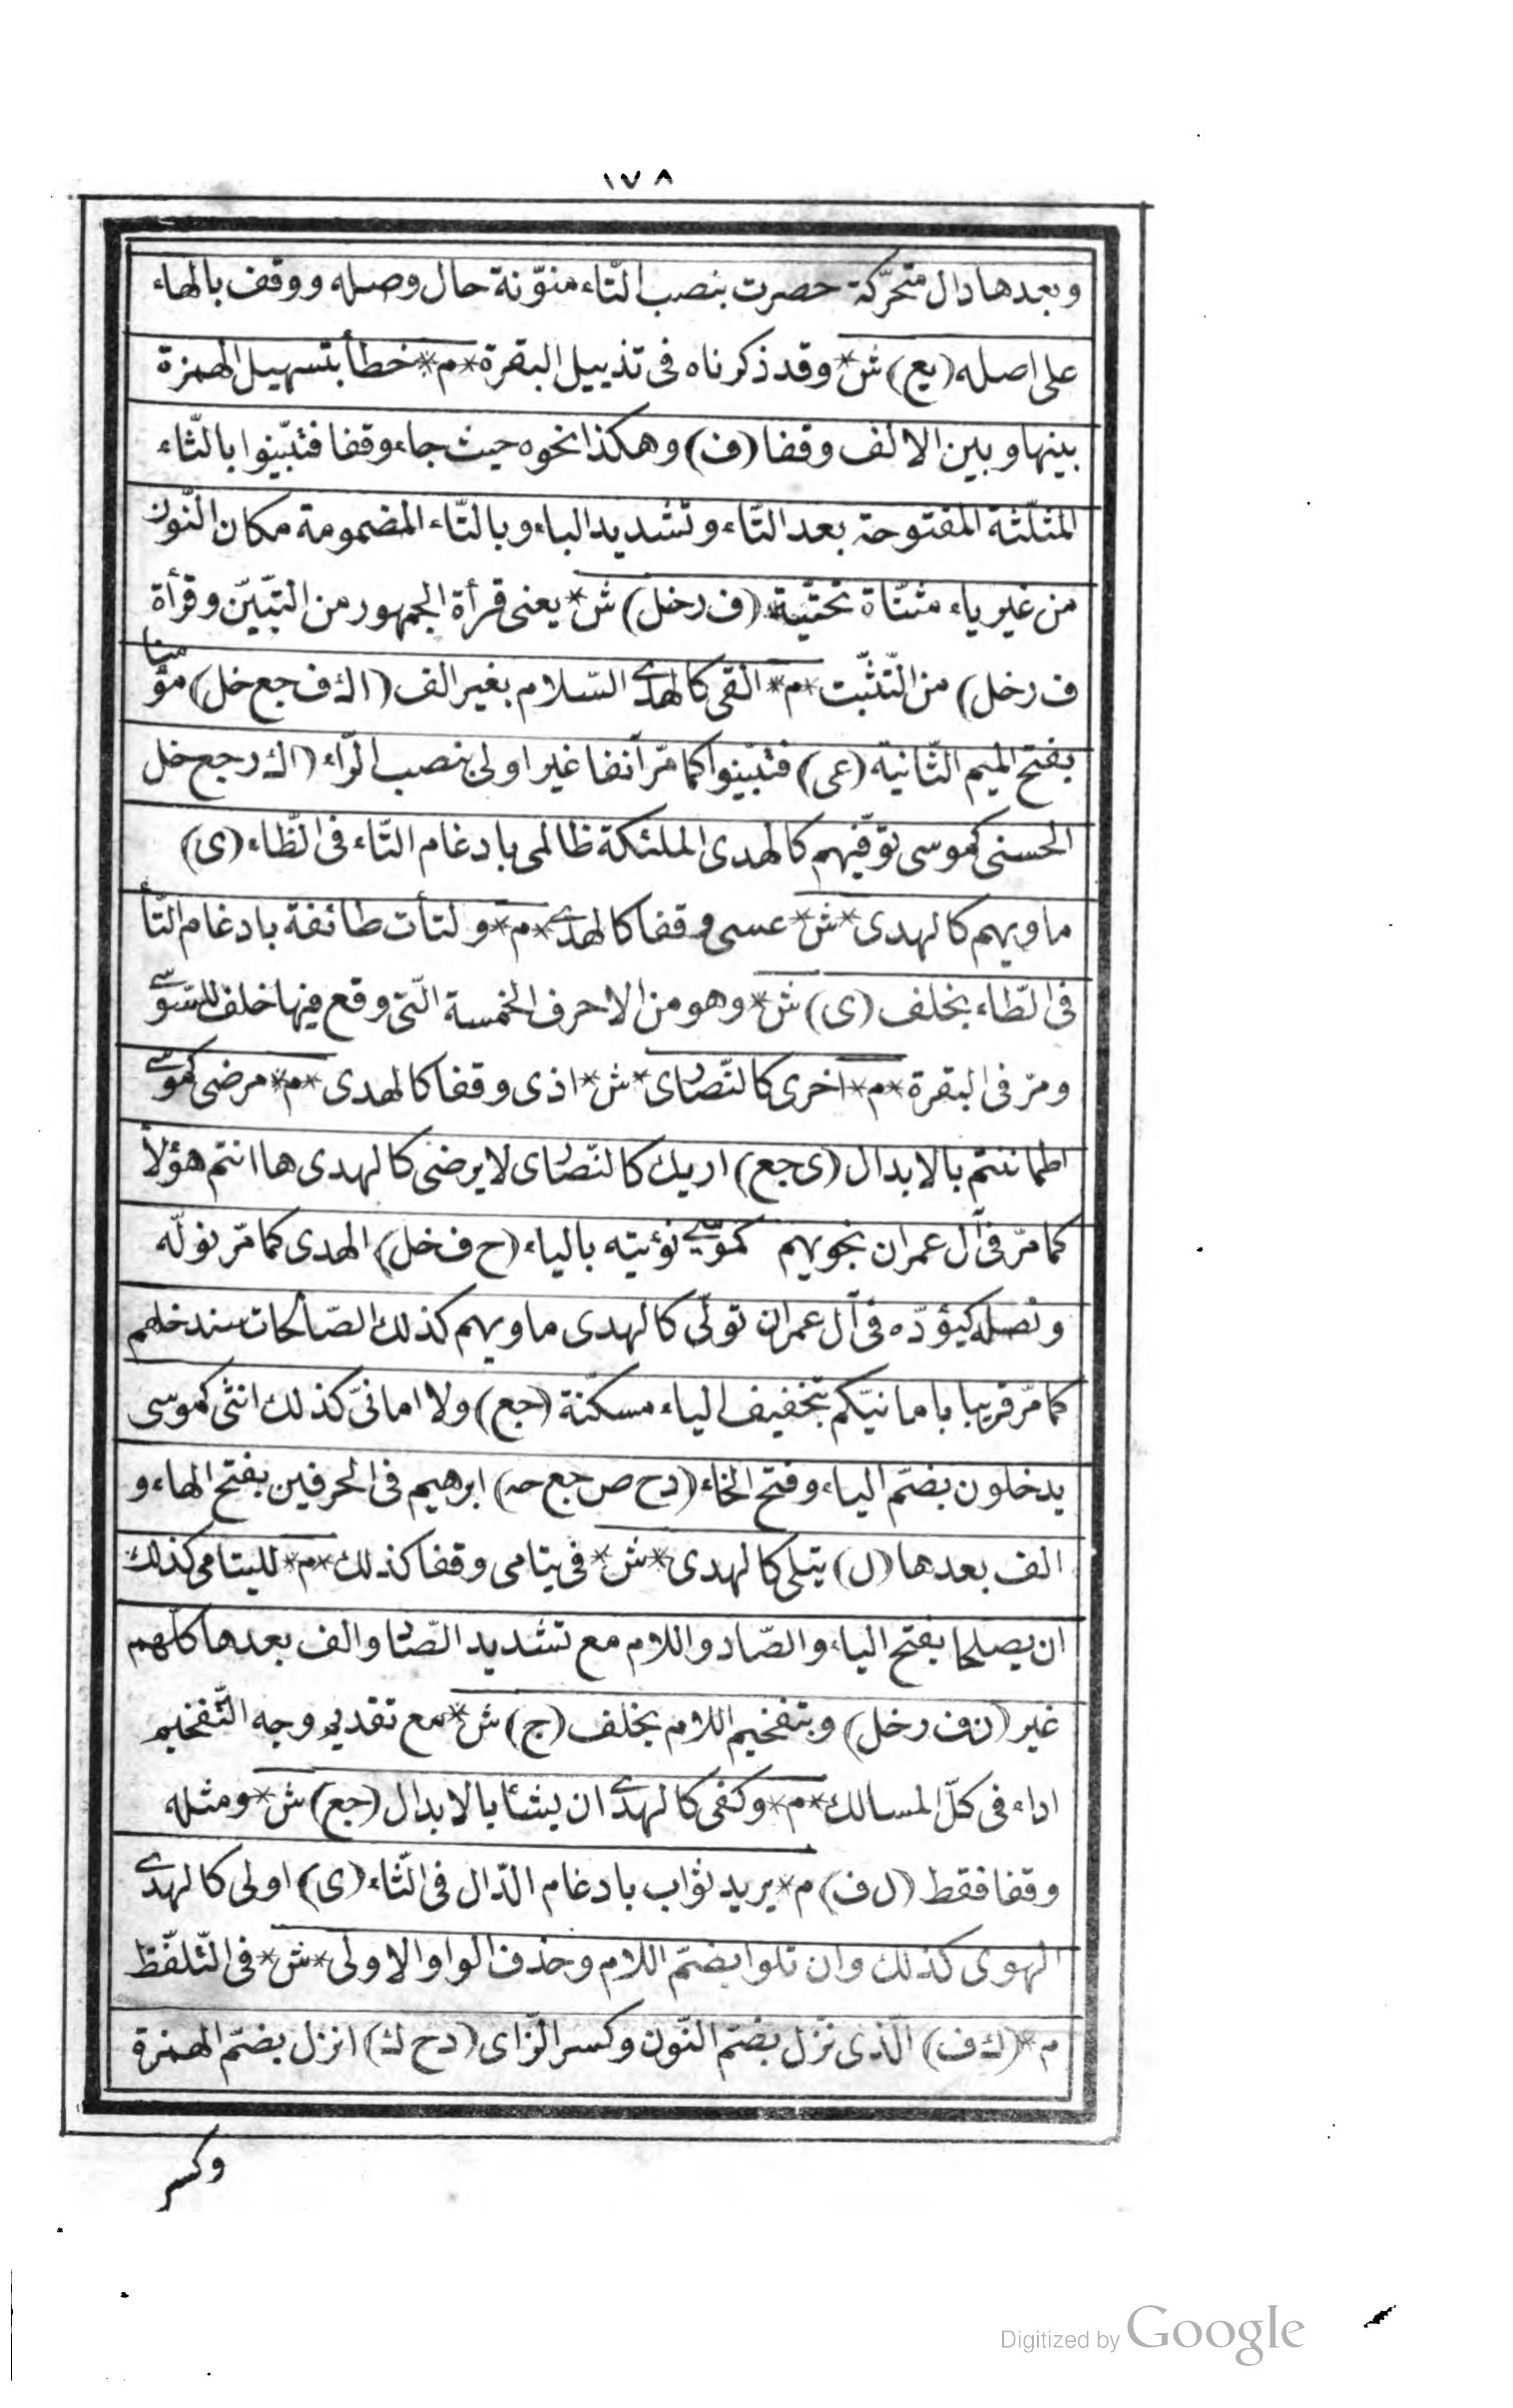 ١٧٨
وبعدها دال متحرّكة حصرت بنصب التّاء منوّنة حال وصله ووقف بالهاء
على اصله (يع) ش* وقد ذكرناه فى تذييل البقرة *م* خطأ بتسهيل الهمزة
بينها وبين الالف وقفا (ف) وهكذا نحوه حيث جاء وقفا فتبّينوا بالثّاء
المثلّثة المفتوحة بعد التّاء وتشديد الباء وبالتّاء المضمومة مكان النّون
من غير ياء مثنّاة تحتّية (ف رخل) ش* يعنى قرأة الجمهور من التبّيّن وقرأة
ف رخل) من التّثبّت *م* القى كالهدى السّلام بغير الف (اك ف جع خل) مؤمنا
بفتح الميم الثّانية (عى) فتبّينوا كما مّر آنفا غير اولى بنصب الرّاء (اك رجع خل
الحسنى كموسى توّفيهم كالهدى الملئكة ظالمى بادغام التّاء فى الظّاء (ى)
ماويهم كالهدى *ش* عسى وقفا كالهدى *م* ولتأت طائفة بادغام التّأ
فى الطّاء بخلف (ى) ش* وهو من الاحرف الخمسة الّتى وقع فيها خلف للسّوسى
ومرّ فى البقرة *م* اخرى كالنّصارى *ش* اذى وقفا كالهدى *م* مرضى كموسى
اطماننتم بالابدال (ى جع) اريك كالنّصارى لا يرضى كالهدى ها انتم هؤلأ
كما مّر فى آل عمران نجويهم كموسى نؤتيه بالياء (ح ف خل) الهدى كما مّر نولّه
ونصله كيؤدّه فى آل عمران تولّى كالهدى ماويهم كذلك الصّالحات سندخلهم
كما مّر قريبا بامانيّكم بتخفيف الياء مسكّنة (جع) ولا امانىّ كذلك انثى كموسى
يدخلون بضمّ الياء وفتح الخاء (دح ص جع حه) ابرهيم فى الحرفين بفتح الهاء و
الف بعدها (ل) يتلى كالهدى *ش* فى يتامى وقفا كذلك *م* لليتامى كذلك
ان يصلحا بفتح الياء والصّاد واللام مع تشديد الصّاد والف بعدها كلّهم
غير (ن ف رخل) وبتفخيم اللام بخلف (ج) ش* مع تقديم وجه التّفخيم
اداء فى كلّ المسالك *م* وكفى كالهدى ان يشأ بالابدال (جع) ش* ومثله
وقفا فقط (ل ف) م* يريد ثواب بادغام الدّال فى الثّاء (ى) اولى كالهدى
الهوى كذلك وان تلوا بضمّ اللام وحذف الواو الاولى *ش* فى التّلفّظ
م* (ك ف) الّذى نزّل بضمّ النّون وكسر الزّاى (دح ك) انزل بضمّ الهمزة
وكسر
Digitized by Google